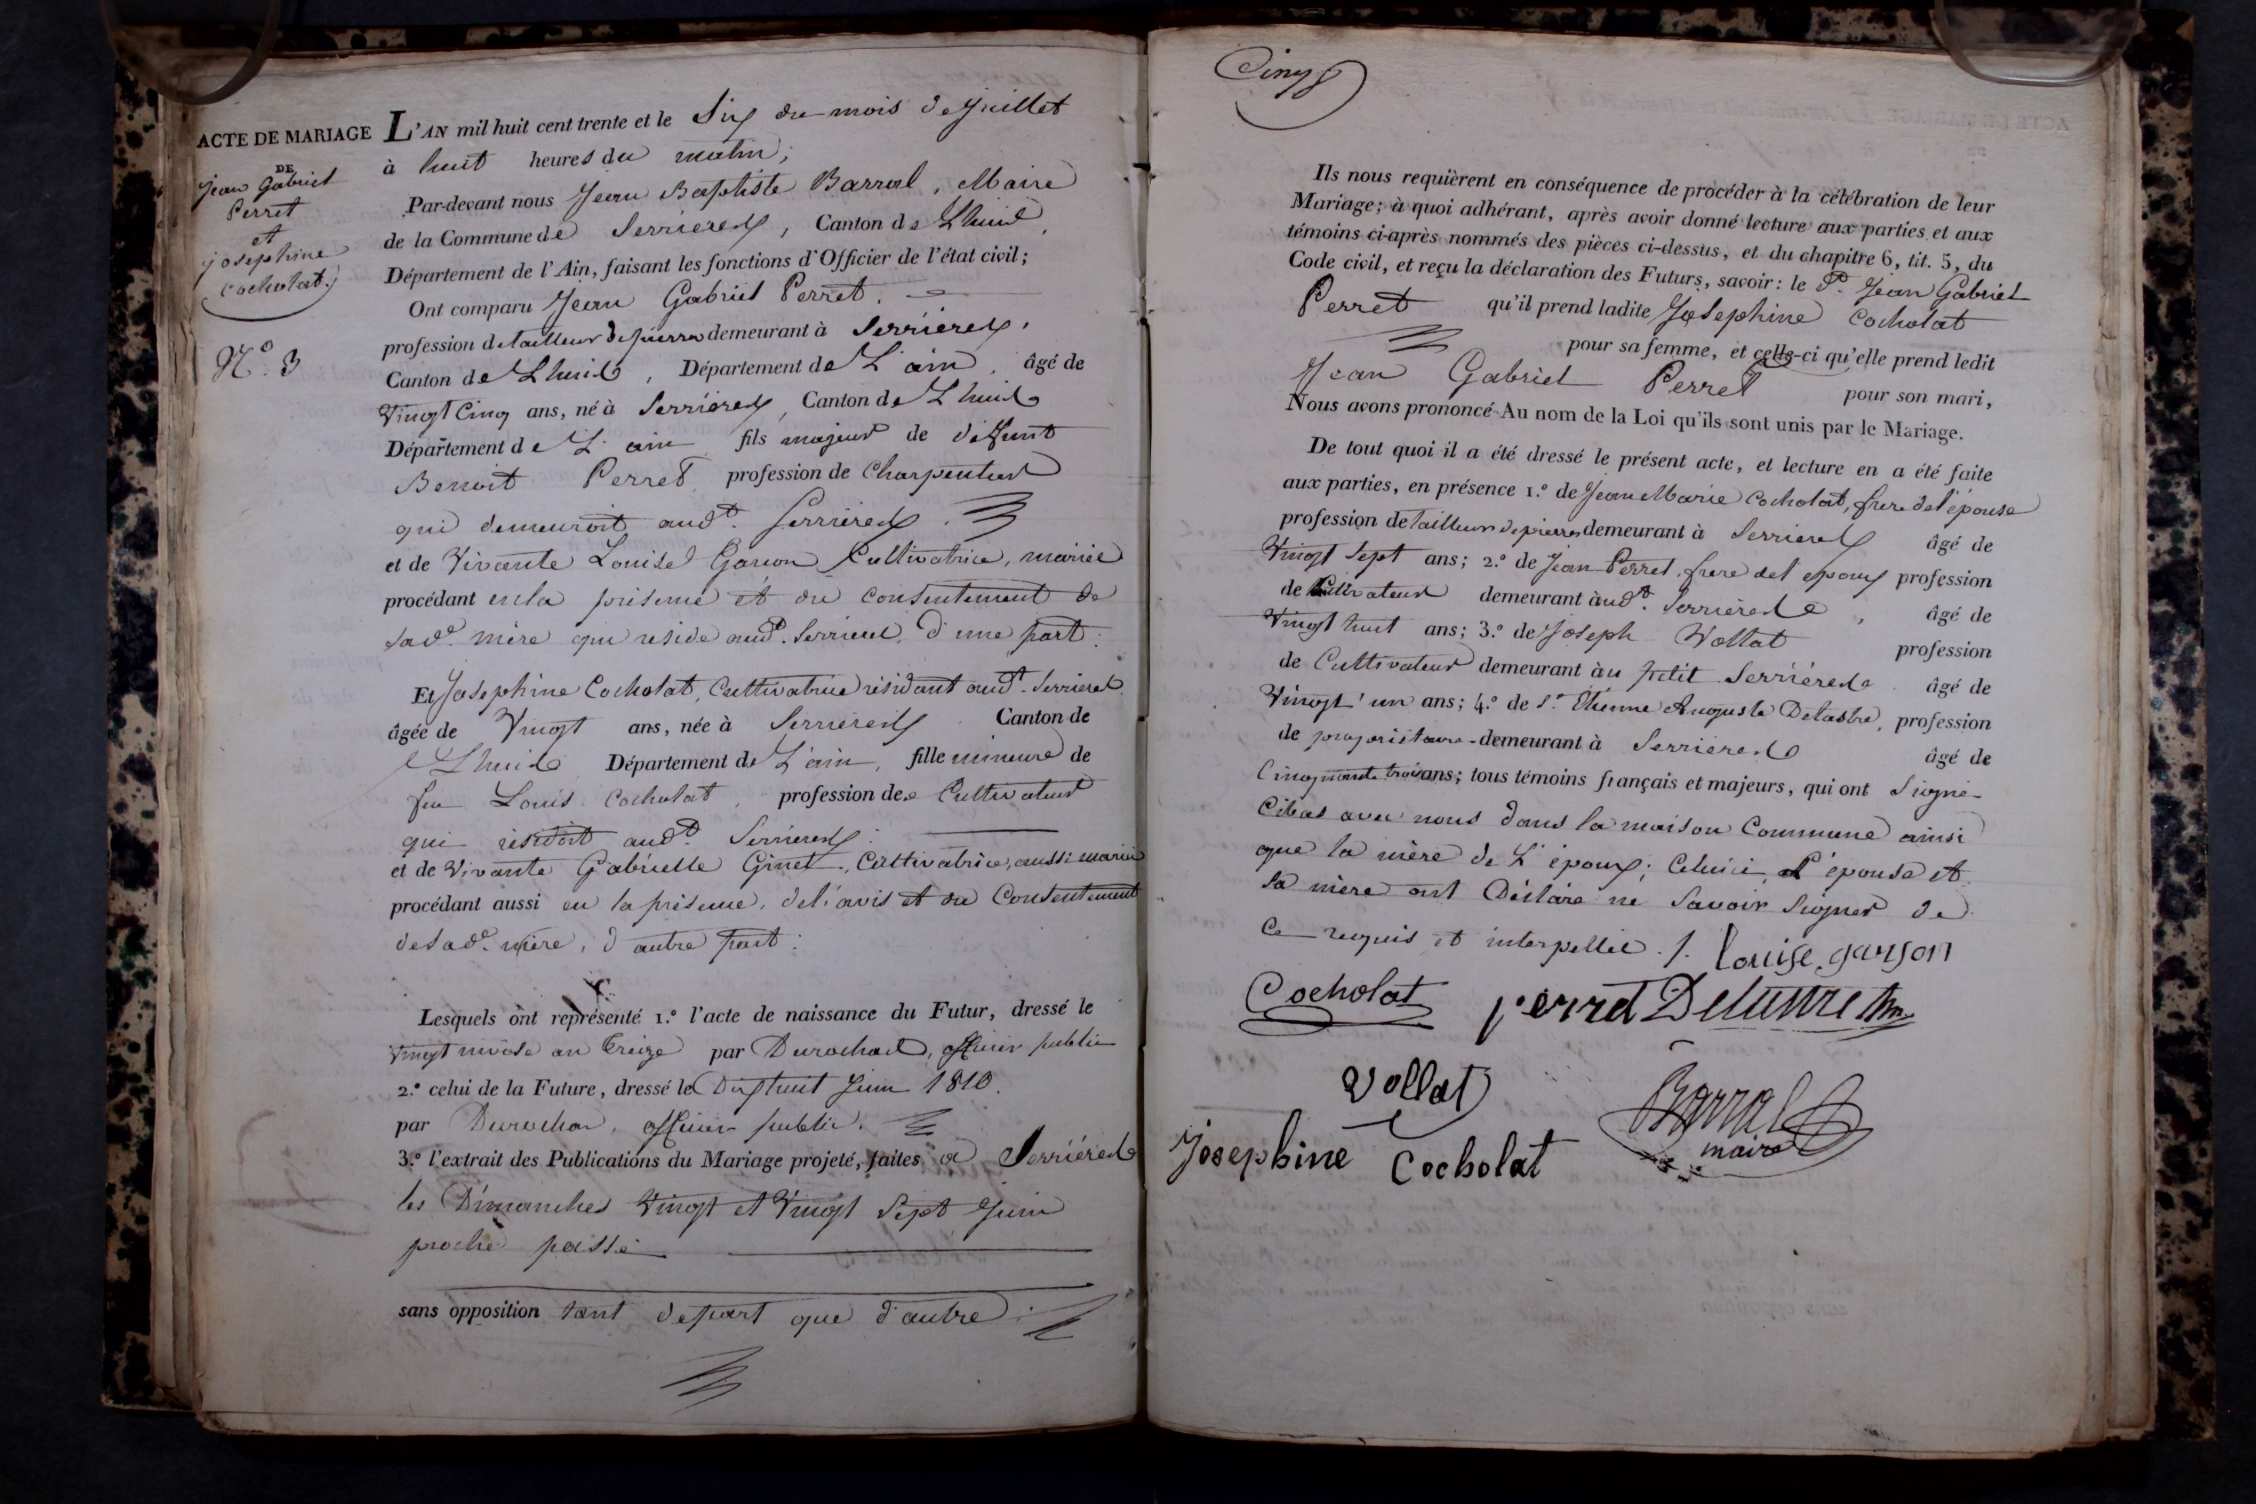 ACTE DE MARIAGE
DE
Jean Gabriel
Perret
et
josephine
cocholat.
N.º 3
L'AN mil huit cent trente et le Six du mois de Juillet
à huit heures du matin;
Par-devant nous Jean Baptiste Barral, Maire
de la Commune de Serrieres, Canton de Lhuis,
Département de l'Ain, faisant les fonctions d'Officier de l'état civil;
Ont comparu Jean Gabriel Perret.
profession de tailleur de pierre demeurant à Serrieres,
Canton de Lhuis, Département de L'ain, âgé de
Vingt Cinq ans, né à Serrieres, Canton de Lhuis
Département de L'ain fils majeur de deffunt
Benoit Perret profession de Charpentier
qui demeuroit aud.t Serrieres.
et de Vivante Louise Garson Cultivatrice, mariée
procédant en la présence et du consentement de
sad.e mère qui reside aud.t Serrieres, d'une part:
Et Josephine Cocholat, Cultivatrice résidant aud.t Serrieres
âgée de Vingt ans, née à Serrieres Canton de
Lhuis Département de L'ain, fille mineure de
feu Louis Cocholat, profession de Cultivateur
qui residoit aud.t Serrieres.
et de Vivante Gabrielle Ginet, Cultivatrice, aussi mariée
procédant aussi en la présence, de l'avis et du Consentement
de sad.e mère, d'autre part:
Lesquels ont représenté 1.º l'acte de naissance du Futur, dressé le
Vingt nivose an treize par Durochat, officier public
2.º celui de la Future, dressé le Dix huit Juin 1810.
par Durochat, officier public.
3.º l'extrait des Publications du Mariage projeté, faites à Serrieres
les Dimanches Vingt et Vingt Sept Juin
proche passé
sans opposition tant de part que d'autre.
Cinq
Ils nous requièrent en conséquence de procéder à la célébration de leur
Mariage; à quoi adhérant, après avoir donné lecture aux parties et aux
témoins ci-après nommés des pièces ci-dessus, et du chapitre 6, tit. 5, du
Code civil, et reçu la déclaration des Futurs, savoir: le S.r Jean Gabriel
Perret qu'il prend ladite Josephine Cocholat
pour sa femme, et celle-ci qu'elle prend ledit
Jean Gabriel Perret pour son mari,
Nous avons prononcé Au nom de la Loi qu'ils sont unis par le Mariage.
De tout quoi il a été dressé le présent acte, et lecture en a été faite
aux parties, en présence 1.º de Jean Marie Cocholat, frere de l'épouse
profession de tailleur de pierres demeurant à Serrieres âgé de
Vingt Sept ans; 2.º de Jean Perret, frere de l'epoux profession
de Cultivateur demeurant aud.t Serrieres, âgé de
Vingt huit ans; 3.º de Joseph Vollat profession
de Cultivateur demeurant au petit Serrieres âgé de
Vingt un ans; 4.º de S.r Etienne Auguste Delastre, profession
de propriétaire demeurant à Serrieres âgé de
Cinquante trois ans; tous témoins français et majeurs, qui ont Signé
Cibas avec nous dans la maison Commune ainsi
que la mère de L'époux; Celui ci, L'épouse et
sa mère ont Déclaré ne Savoir Signer de
ce requis et interpellé ./. Louise garson
Cocholat perret Delastre
Vollat Barral
maire
Josephine Cocholat